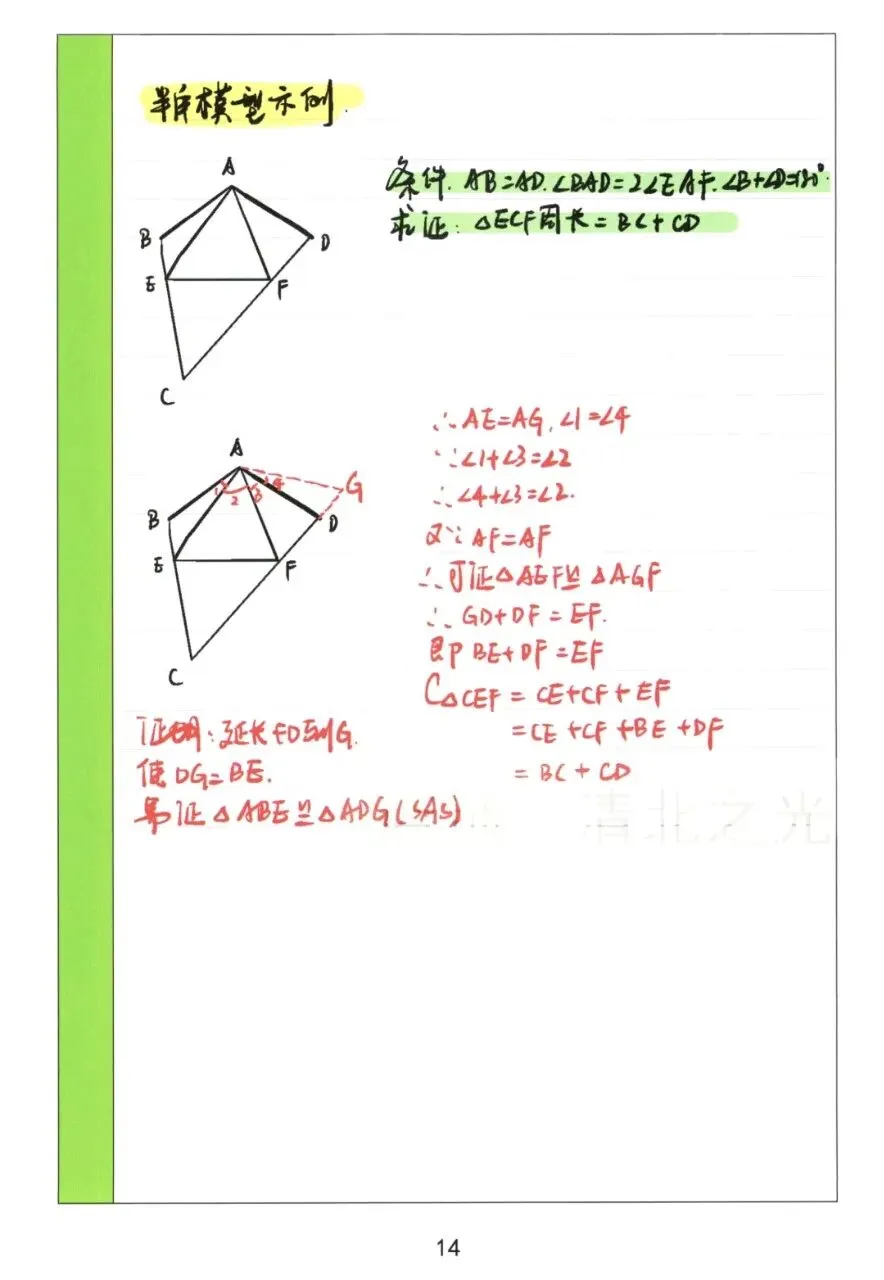 半角模型示例.
A
B
D
E
F
C
条件. AB=AD.∠BAD=2∠EAF.∠B+∠D=180°.
求证: △ECF周长=BC+CD
A
G
1
2
3
4
B
D
E
F
C
证明:延长FD到G.
使DG=BE.
易证△ABE≌△ADG(SAS)
∴AE=AG.∠1=∠4
∵∠1+∠3=∠2
∴∠4+∠3=∠2.
又∵AF=AF
∴可证△AEF≌△AGF
∴GD+DF=EF.
即BE+DF=EF
C△CEF=CE+CF+EF
=CE+CF+BE+DF
=BC+CD
清北之光
14